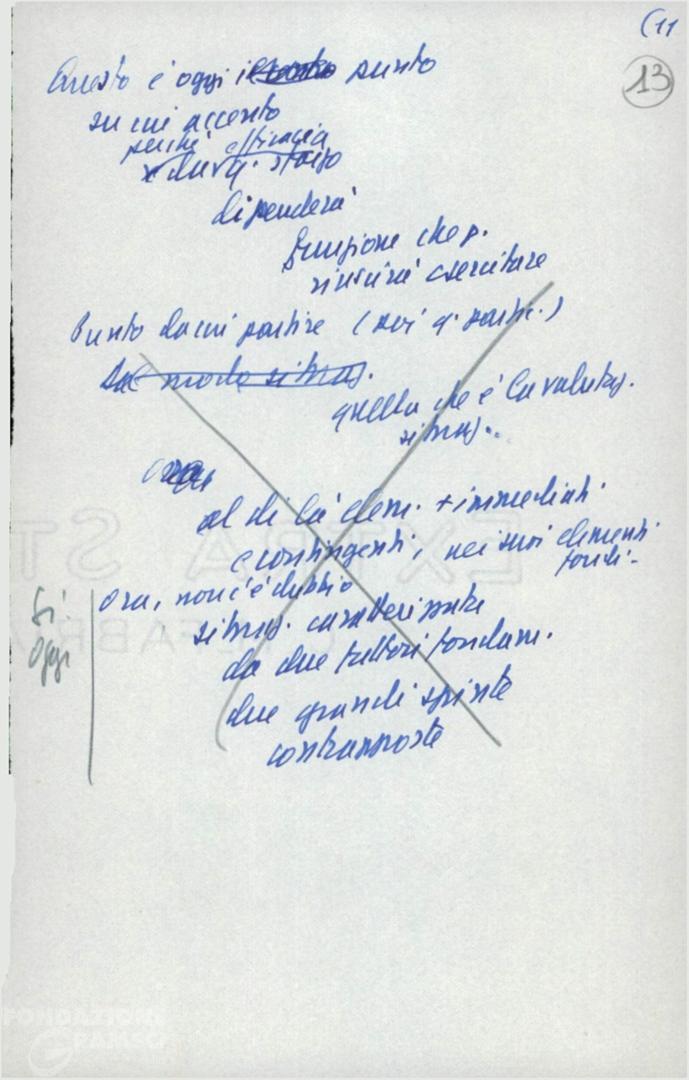 (11
13
Questo è oggi il punto
su cui accento
perché efficacia
e durq. sforzo
dipenderà
funzione che p.
riuscirà esercitare
Punto da cui partire (per q. parte.)
dal modo situaz.
quella che è la valutaz.
situaz..
ora
al di là elem. + immediati
e contingenti, nei suoi elementi
fondi-
ora, non c'è dubbio
situaz. caratterizzata
da due fattori fondam.
due grandi spinte
contrapposte
Sì
oggi
FONDAZIONE
GRAMSCI
EXTRA ST